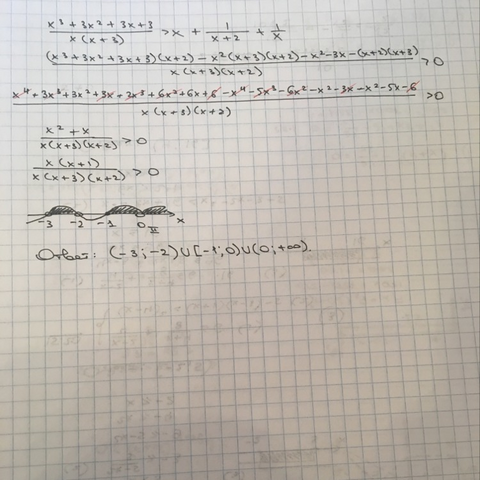 x³ + 3x² + 3x + 3 / x(x+3) > x + 1/(x+2) + 1/x
(x³ + 3x² + 3x + 3)(x+2) − x²(x+3)(x+2) − x² − 3x − (x+2)(x+3) / x(x+3)(x+2) > 0
x⁴ + 3x³ + 3x² + 3x + 2x³ + 6x² + 6x + 6 − x⁴ − 5x³ − 6x² − x² − 3x − x² − 5x − 6 / x(x+3)(x+2) > 0
x² + x / x(x+3)(x+2) > 0
x(x+1) / x(x+3)(x+2) > 0
−3 −2 −1 0 II x
Ответ: (−3; −2) ∪ [−1; 0) ∪ (0; +∞).